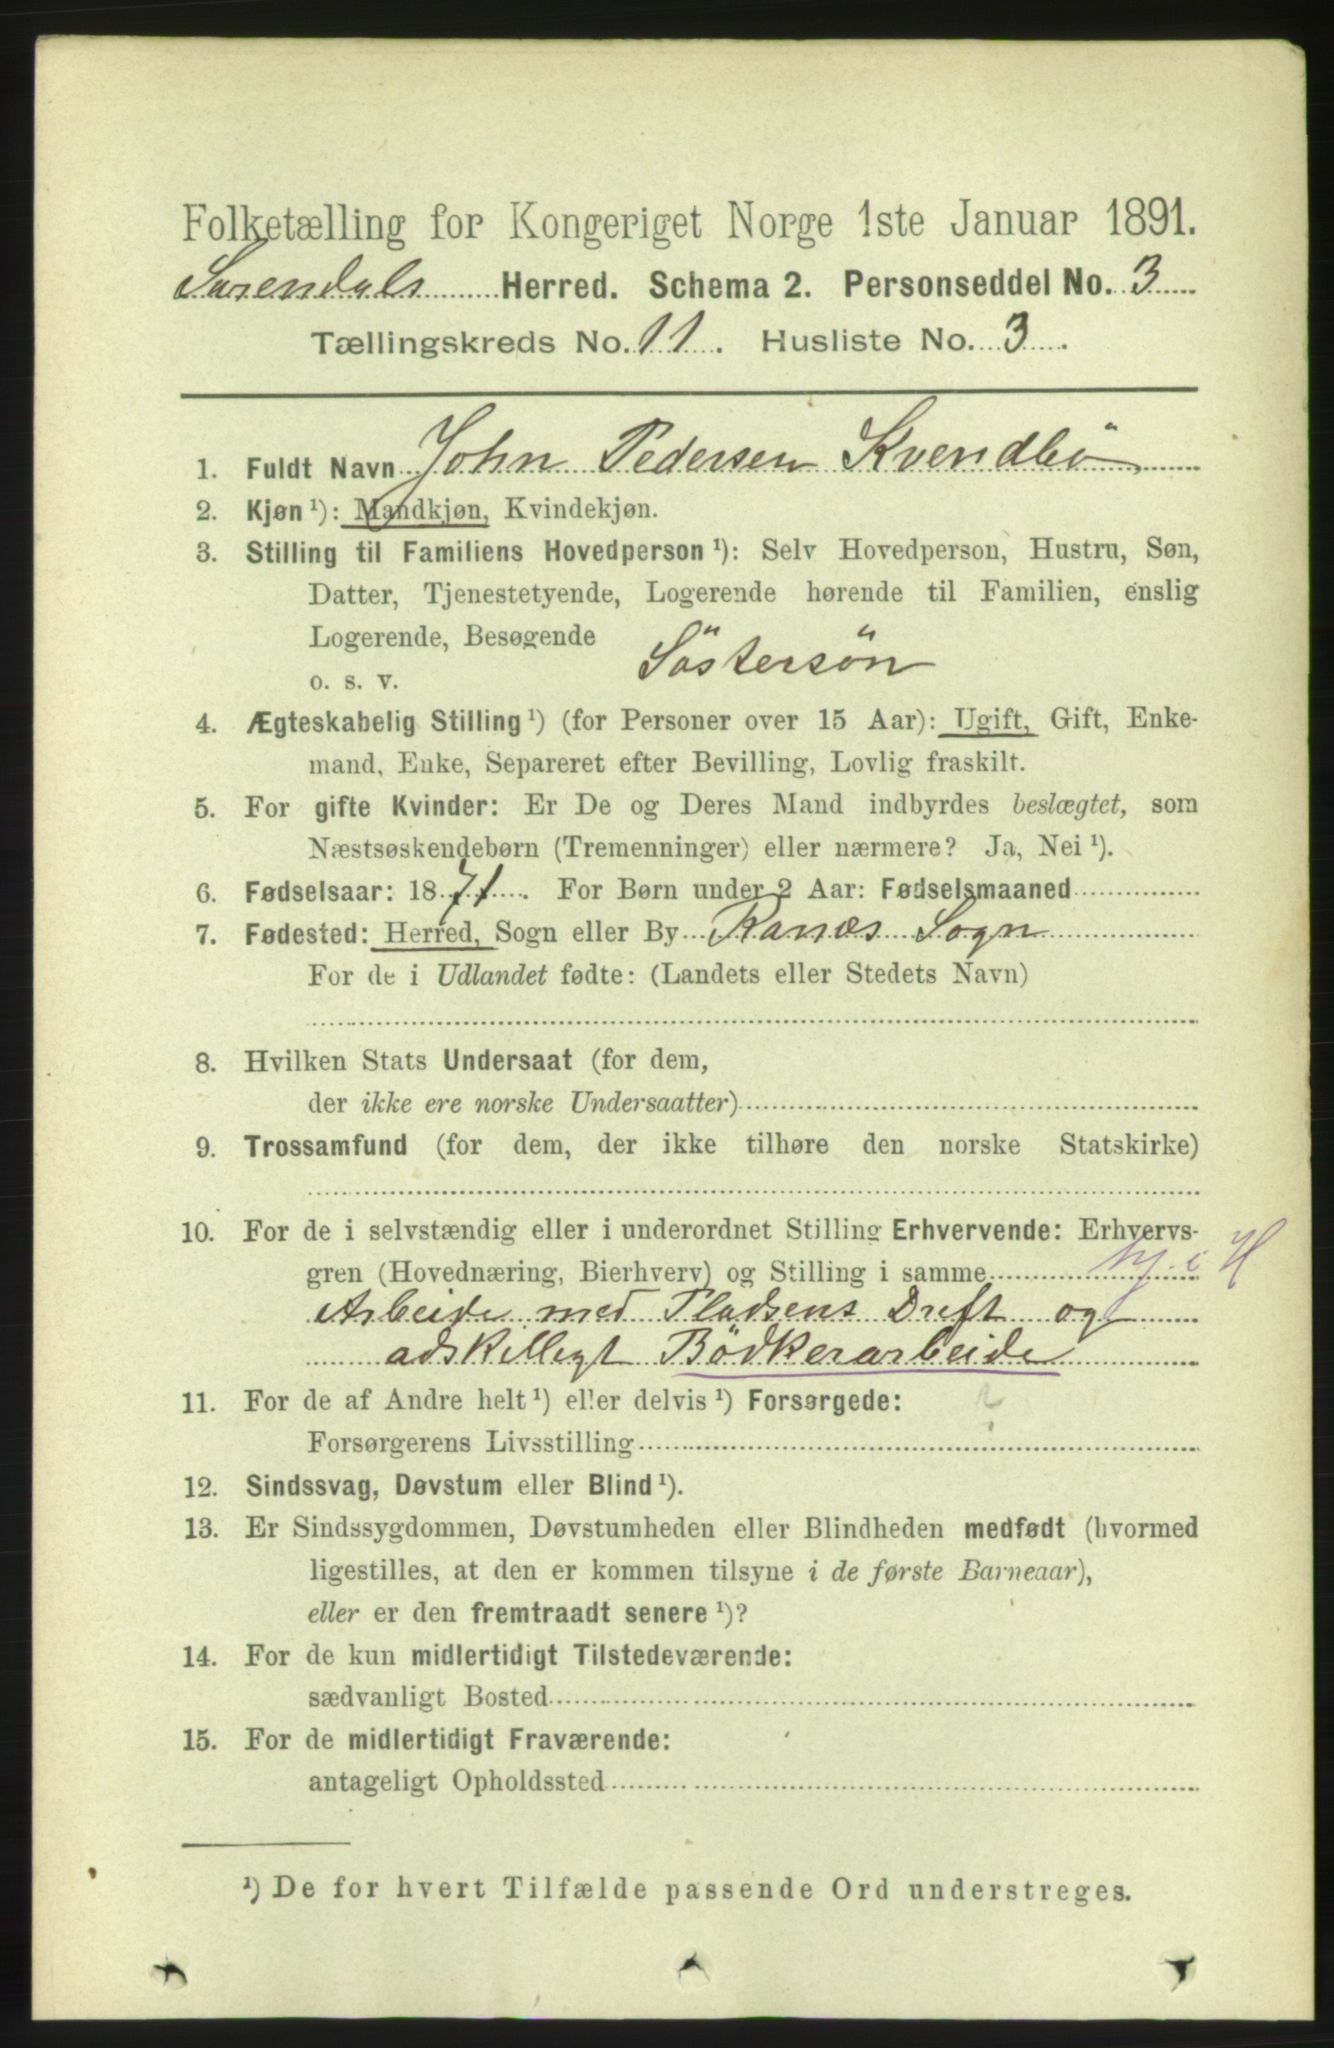 Folketælling for Kongeriget Norge 1ste Januar 1891.
Surendals Herred. Schema 2. Personseddel No. 3
Tællingskreds No. 11. Husliste No. 3.
1. Fuldt Navn John Pedersen Kvendbö
2. Kjøn ¹): Mandkjøn, Kvindekjøn.
3. Stilling til Familiens Hovedperson ¹): Selv Hovedperson, Hustru, Søn,
Datter, Tjenestetyende, Logerende hørende til Familien, enslig
Logerende, Besøgende
o. s. v. Söstersön
4. Ægteskabelig Stilling ¹) (for Personer over 15 Aar): Ugift, Gift, Enke-
mand, Enke, Separeret efter Bevilling, Lovlig fraskilt.
5. For gifte Kvinder: Er De og Deres Mand indbyrdes beslægtet, som
Næstsøskendebørn (Tremenninger) eller nærmere? Ja, Nei ¹).
6. Fødselsaar: 1871. For Børn under 2 Aar: Fødselsmaaned
7. Fødested: Herred, Sogn eller By Ranæs Sogn
For de i Udlandet fødte: (Landets eller Stedets Navn)
8. Hvilken Stats Undersaat (for dem,
der ikke ere norske Undersaatter)
9. Trossamfund (for dem, der ikke tilhøre den norske Statskirke)
10. For de i selvstændig eller i underordnet Stilling Erhvervende: Erhvervs-
gren (Hovednæring, Bierhverv) og Stilling i samme
Arbeide med Pladsens Dreft og
adskilligt Bödkerarbeide
11. For de af Andre helt ¹) eller delvis ¹) Forsørgede:
Forsørgerens Livsstilling
12. Sindssvag, Døvstum eller Blind ¹).
13. Er Sindssygdommen, Døvstumheden eller Blindheden medfødt (hvormed
ligestilles, at den er kommen tilsyne i de første Barneaar),
eller er den fremtraadt senere ¹)?
14. For de kun midlertidigt Tilstedeværende:
sædvanligt Bosted
15. For de midlertidigt Fraværende:
antageligt Opholdssted
¹) De for hvert Tilfælde passende Ord understreges.